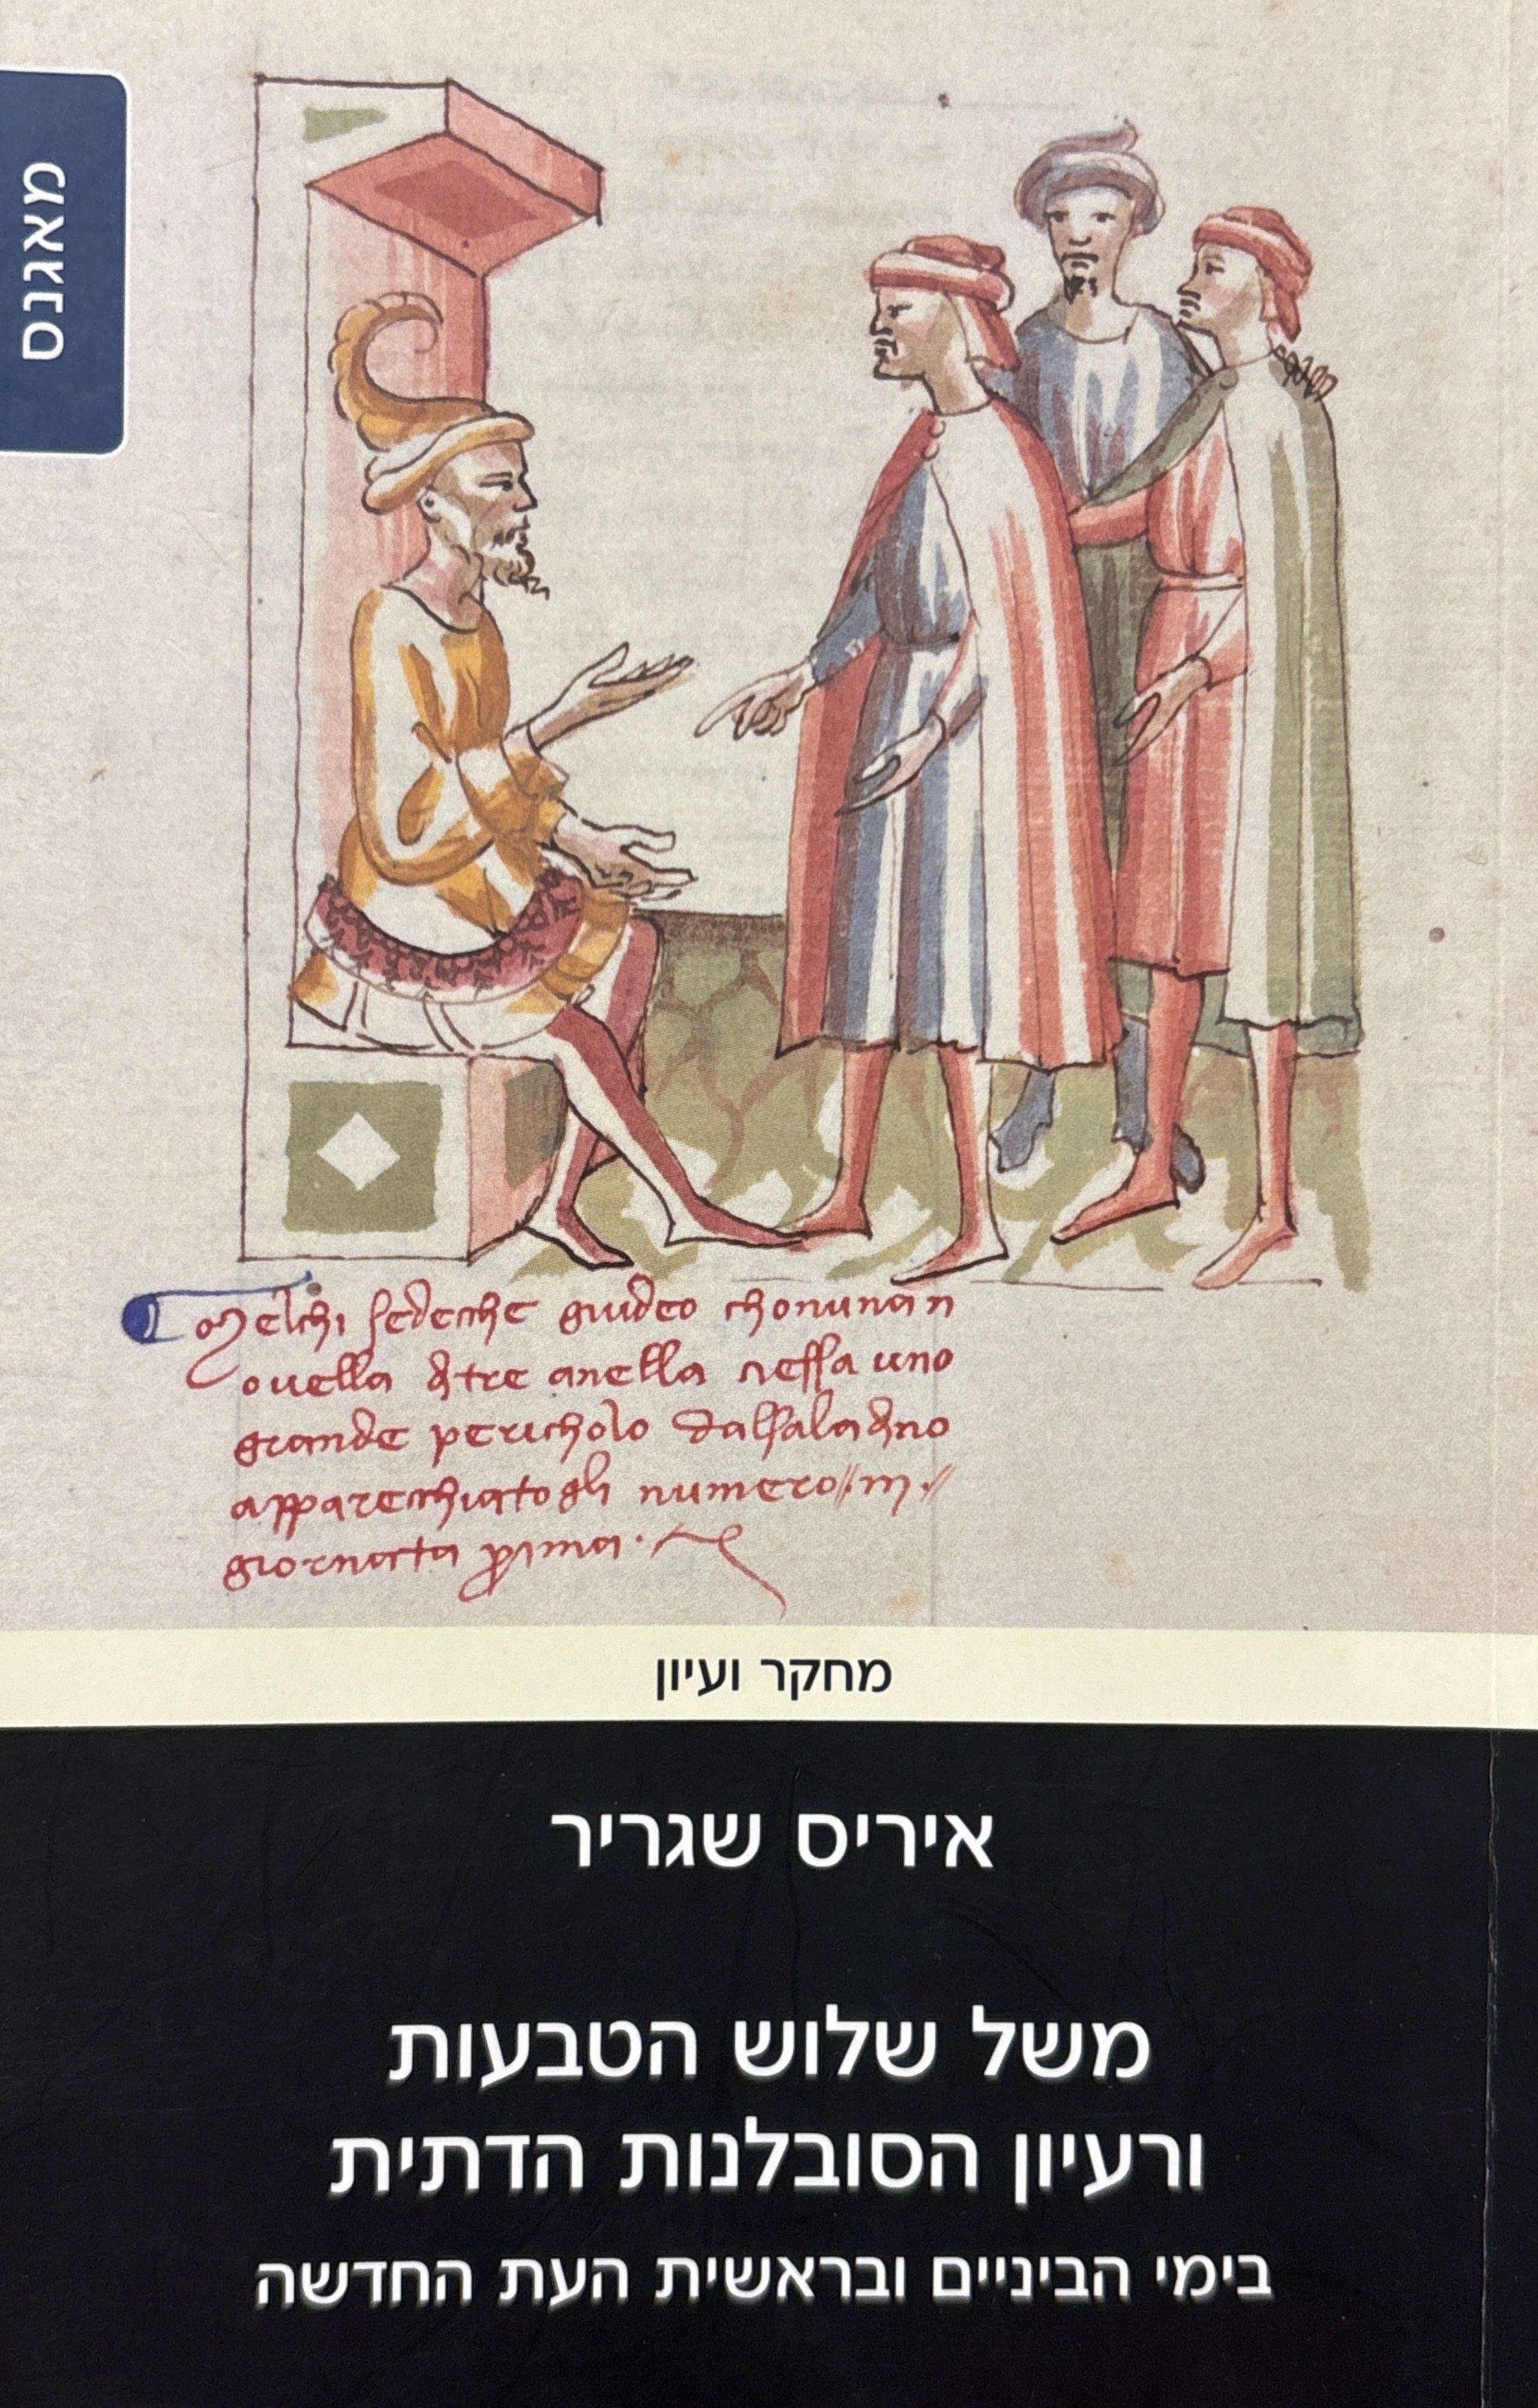 מאגנס
Melchi sedecche giudeo chonunan
ovella di tre anella cessa uno
grande pericholo dalsaladino
apparecchiatogli numero // III //
giornata prima
מחקר ועיון
איריס שגריר
משל שלוש הטבעות
ורעיון הסובלנות הדתית
בימי הביניים ובראשית העת החדשה